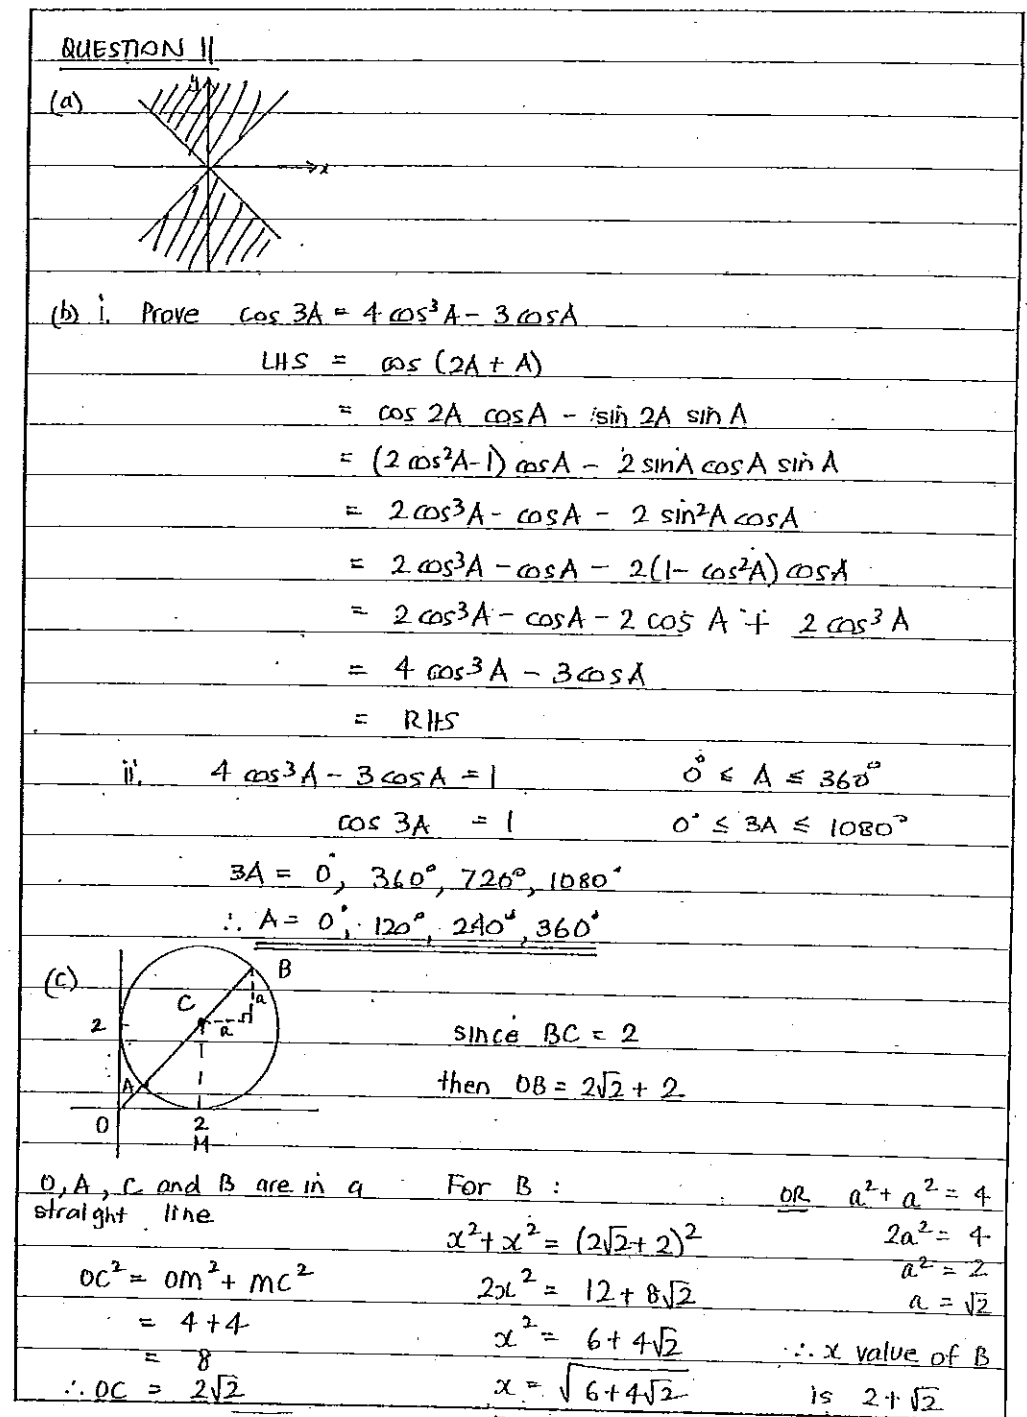 QUESTION 11
(a)
y
x
(b) i. Prove cos 3A = 4 cos³A - 3 cosA
LHS = cos (2A + A)
= cos 2A cosA - sin 2A sin A
= (2 cos²A-1) cosA - 2 sinA cosA sin A
= 2 cos³A - cosA - 2 sin²A cosA
= 2 cos³A - cosA - 2(1- cos²A) cosA
= 2 cos³A - cosA - 2 cos A + 2 cos³ A
= 4 cos³A - 3 cosA
= RHS
ii. 4 cos³A - 3 cosA = 1 0° ≤ A ≤ 360°
cos 3A = 1 0° ≤ 3A ≤ 1080°
3A = 0°, 360°, 720°, 1080°
∴ A = 0°, 120°, 240°, 360°
(c)
B
C
a
a
2
A
0
2
M
since BC = 2
then OB = 2√2 + 2
O, A, C and B are in a
straight line
OC² = OM² + MC²
= 4 + 4
= 8
∴ OC = 2√2
For B :
x² + x² = (2√2 + 2)²
2x² = 12 + 8√2
x² = 6 + 4√2
x = √6 + 4√2
OR a² + a² = 4
2a² = 4
a² = 2
a = √2
∴ x value of B
is 2 + √2